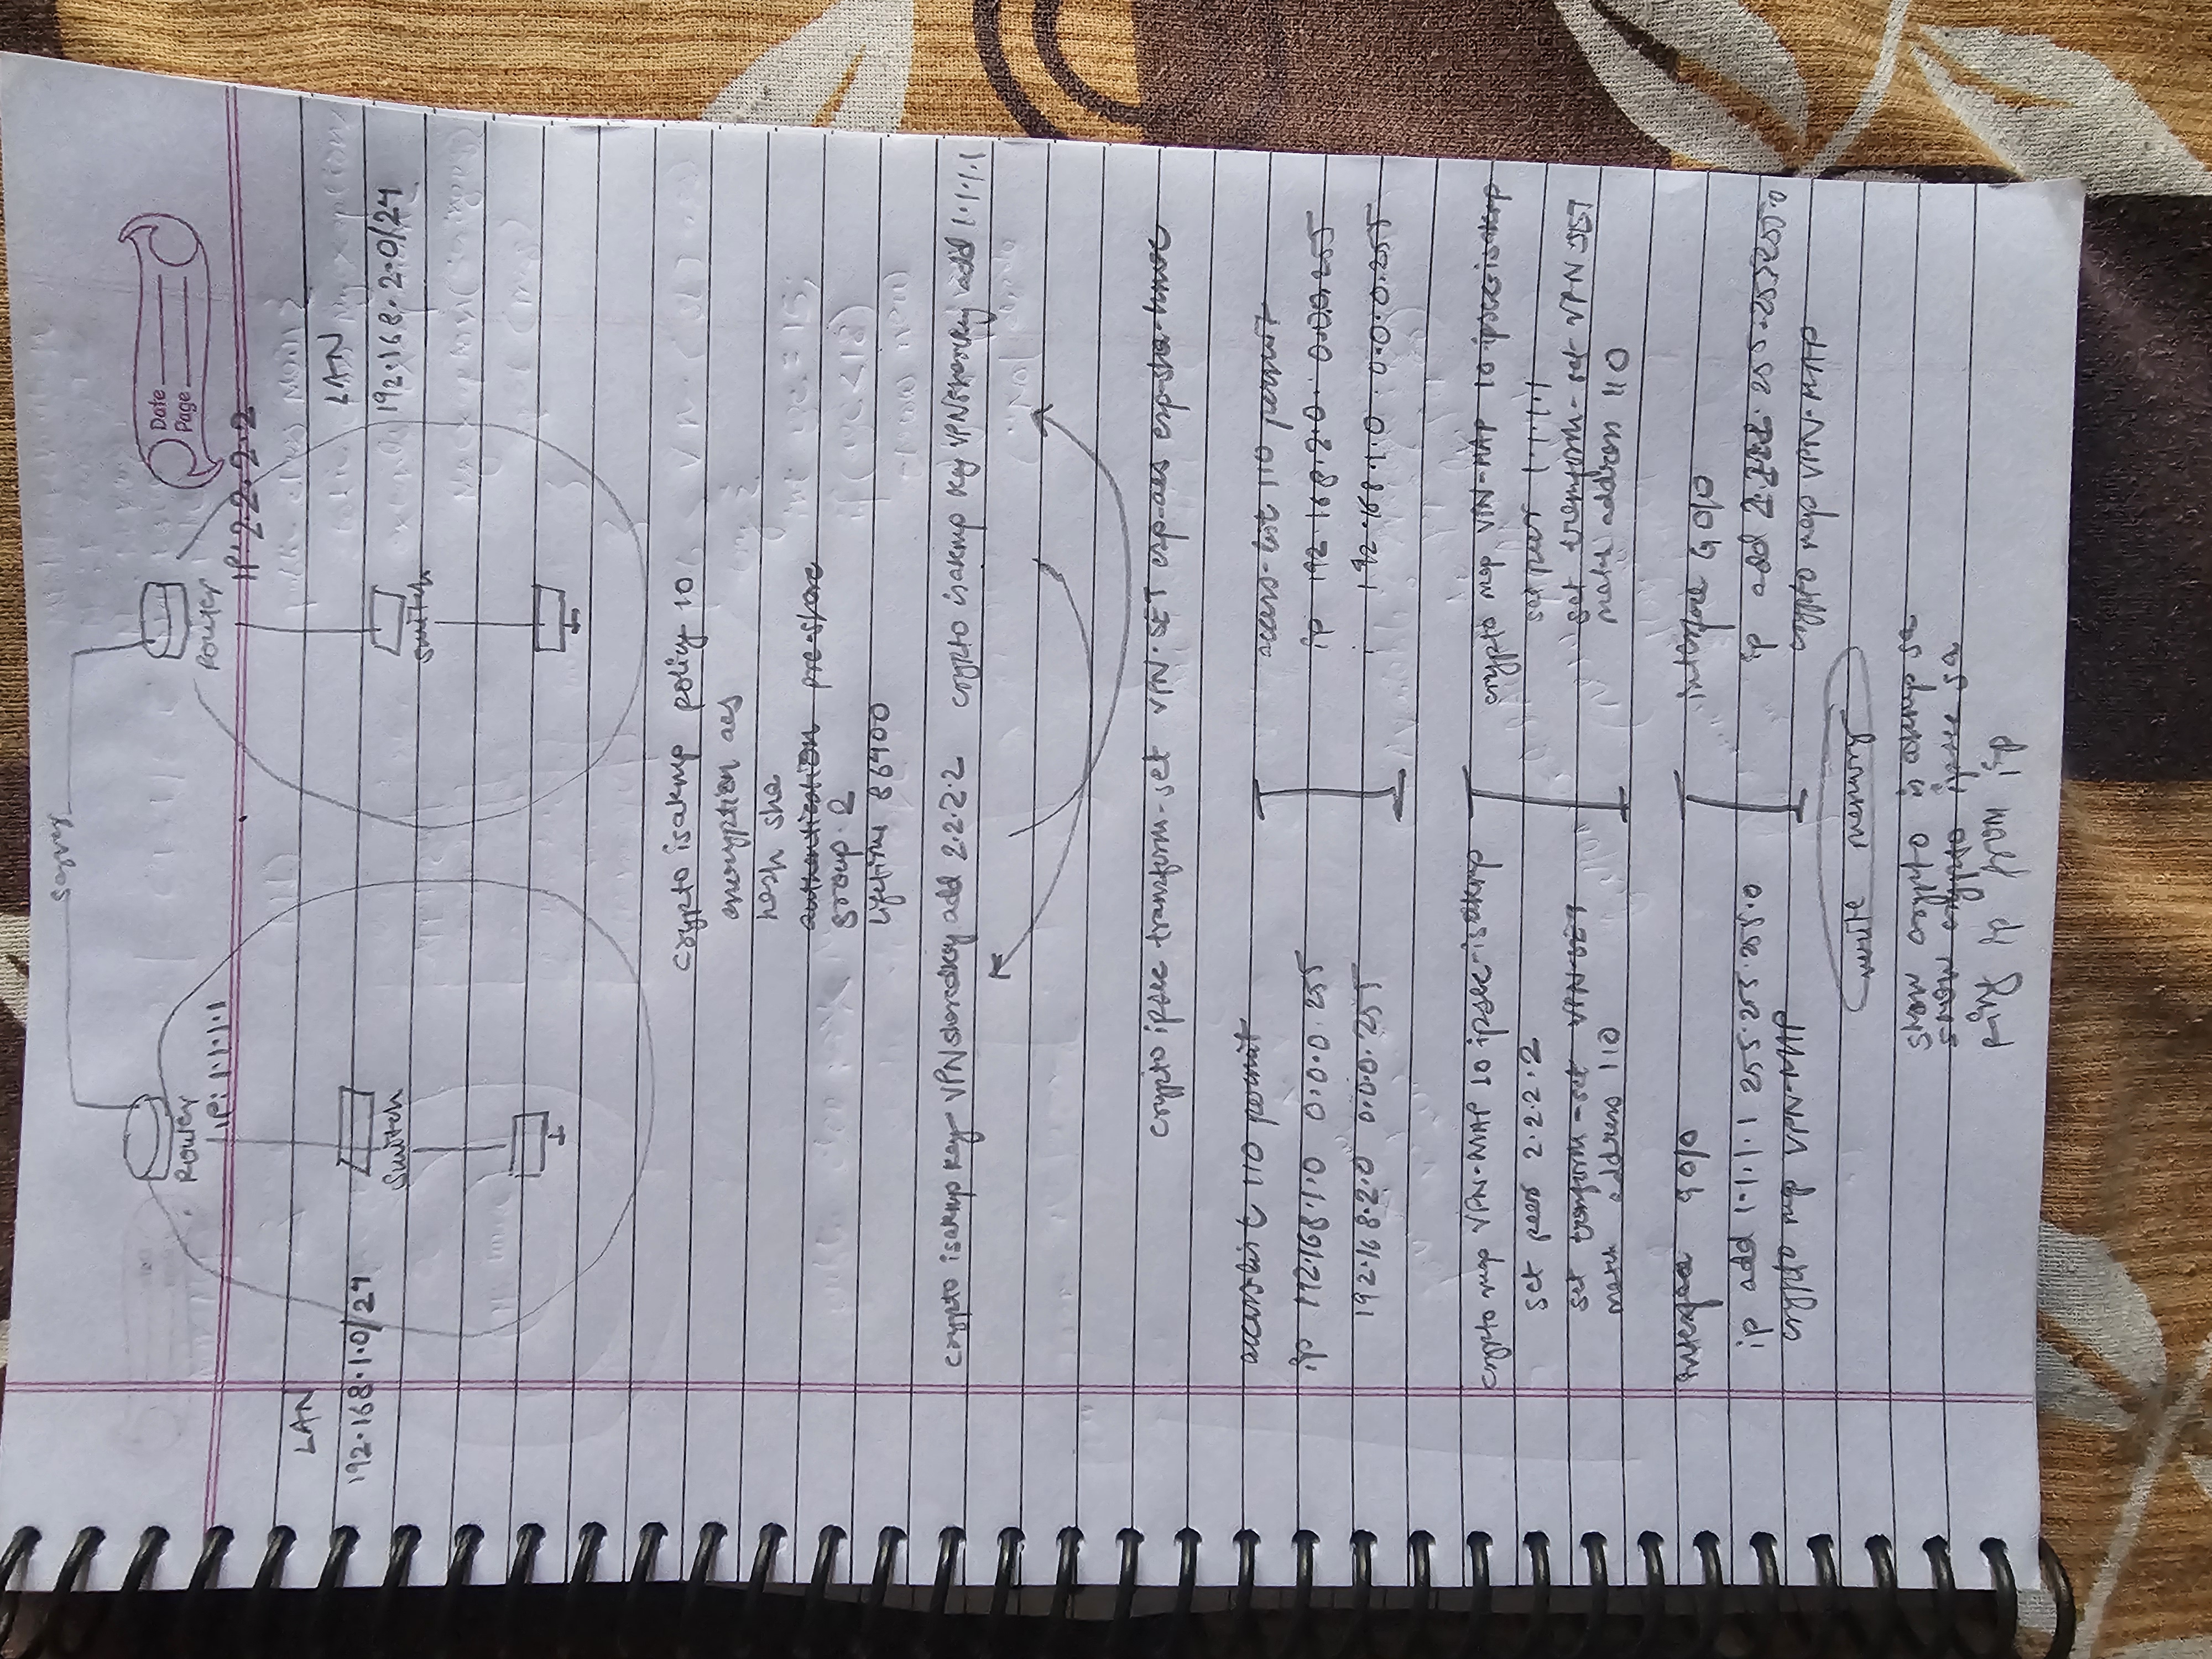 Server
Router
IP: 1.1.1.1
Router
IP: 2.2.2.2
Date
Page
LAN
192.168.1.0/24
Switch
LAN
192.168.2.0/24
switch
crypto isakmp policy 10
encryption aes
hash sha
authentication pre-share
group 2
lifetime 86400
crypto isakmp key VPNsharedkey add 2.2.2.2
crypto isakmp key add 1.1.1.1
crypto ipsec transform-set VPN-SET esp-aes esp-sha-hmac
access-list 110 permit
ip 192.168.1.0 0.0.0.255
192.168.2.0 0.0.0.255
access-list 110 permit
ip 192.168.2.0 0.0.0.255
192.168.1.0 0.0.0.255
crypto map VPN-MAP 10 ipsec-isakmp
set peer 2.2.2.2
set transform-set VPN-SET
match address 110
crypto map VPN-MAP 10 ipsec-isakmp
set peer 1.1.1.1
set transform-set VPN SET
match address 110
interface g 0/0
ip add 1.1.1.1 255.255.255.0
crypto map VPN-MAP
interface G 0/0
ip add 2.2.2.2 255.255.255.0
crypto map VPN-MAP
write memory
show crypto isakmp sa
show crypto ipsec sa
ping ip from